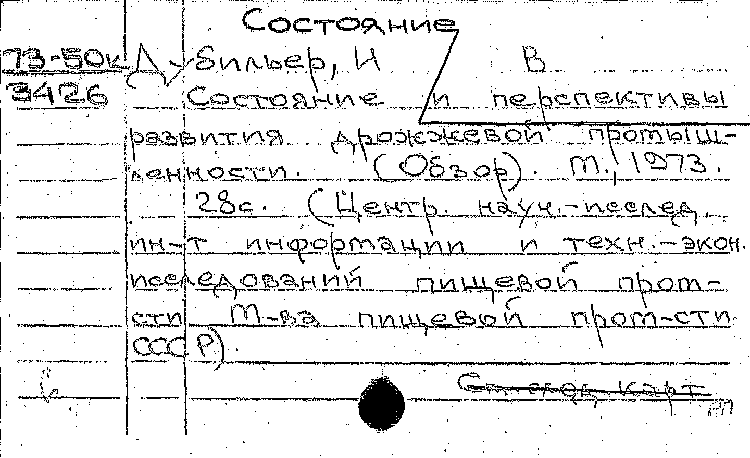 Состояние
73-50к Д-Бильер, И В
3426 Состояние и перспективы
развития дрожжевой промыш-
ленности. (Обзор). М., 1973.
28с. (Центр. науч.-исслед.
ин-т информации и техн.-экон.
исследований пищевой пром-
сти М-ва пищевой пром-сти
СССР).
карт